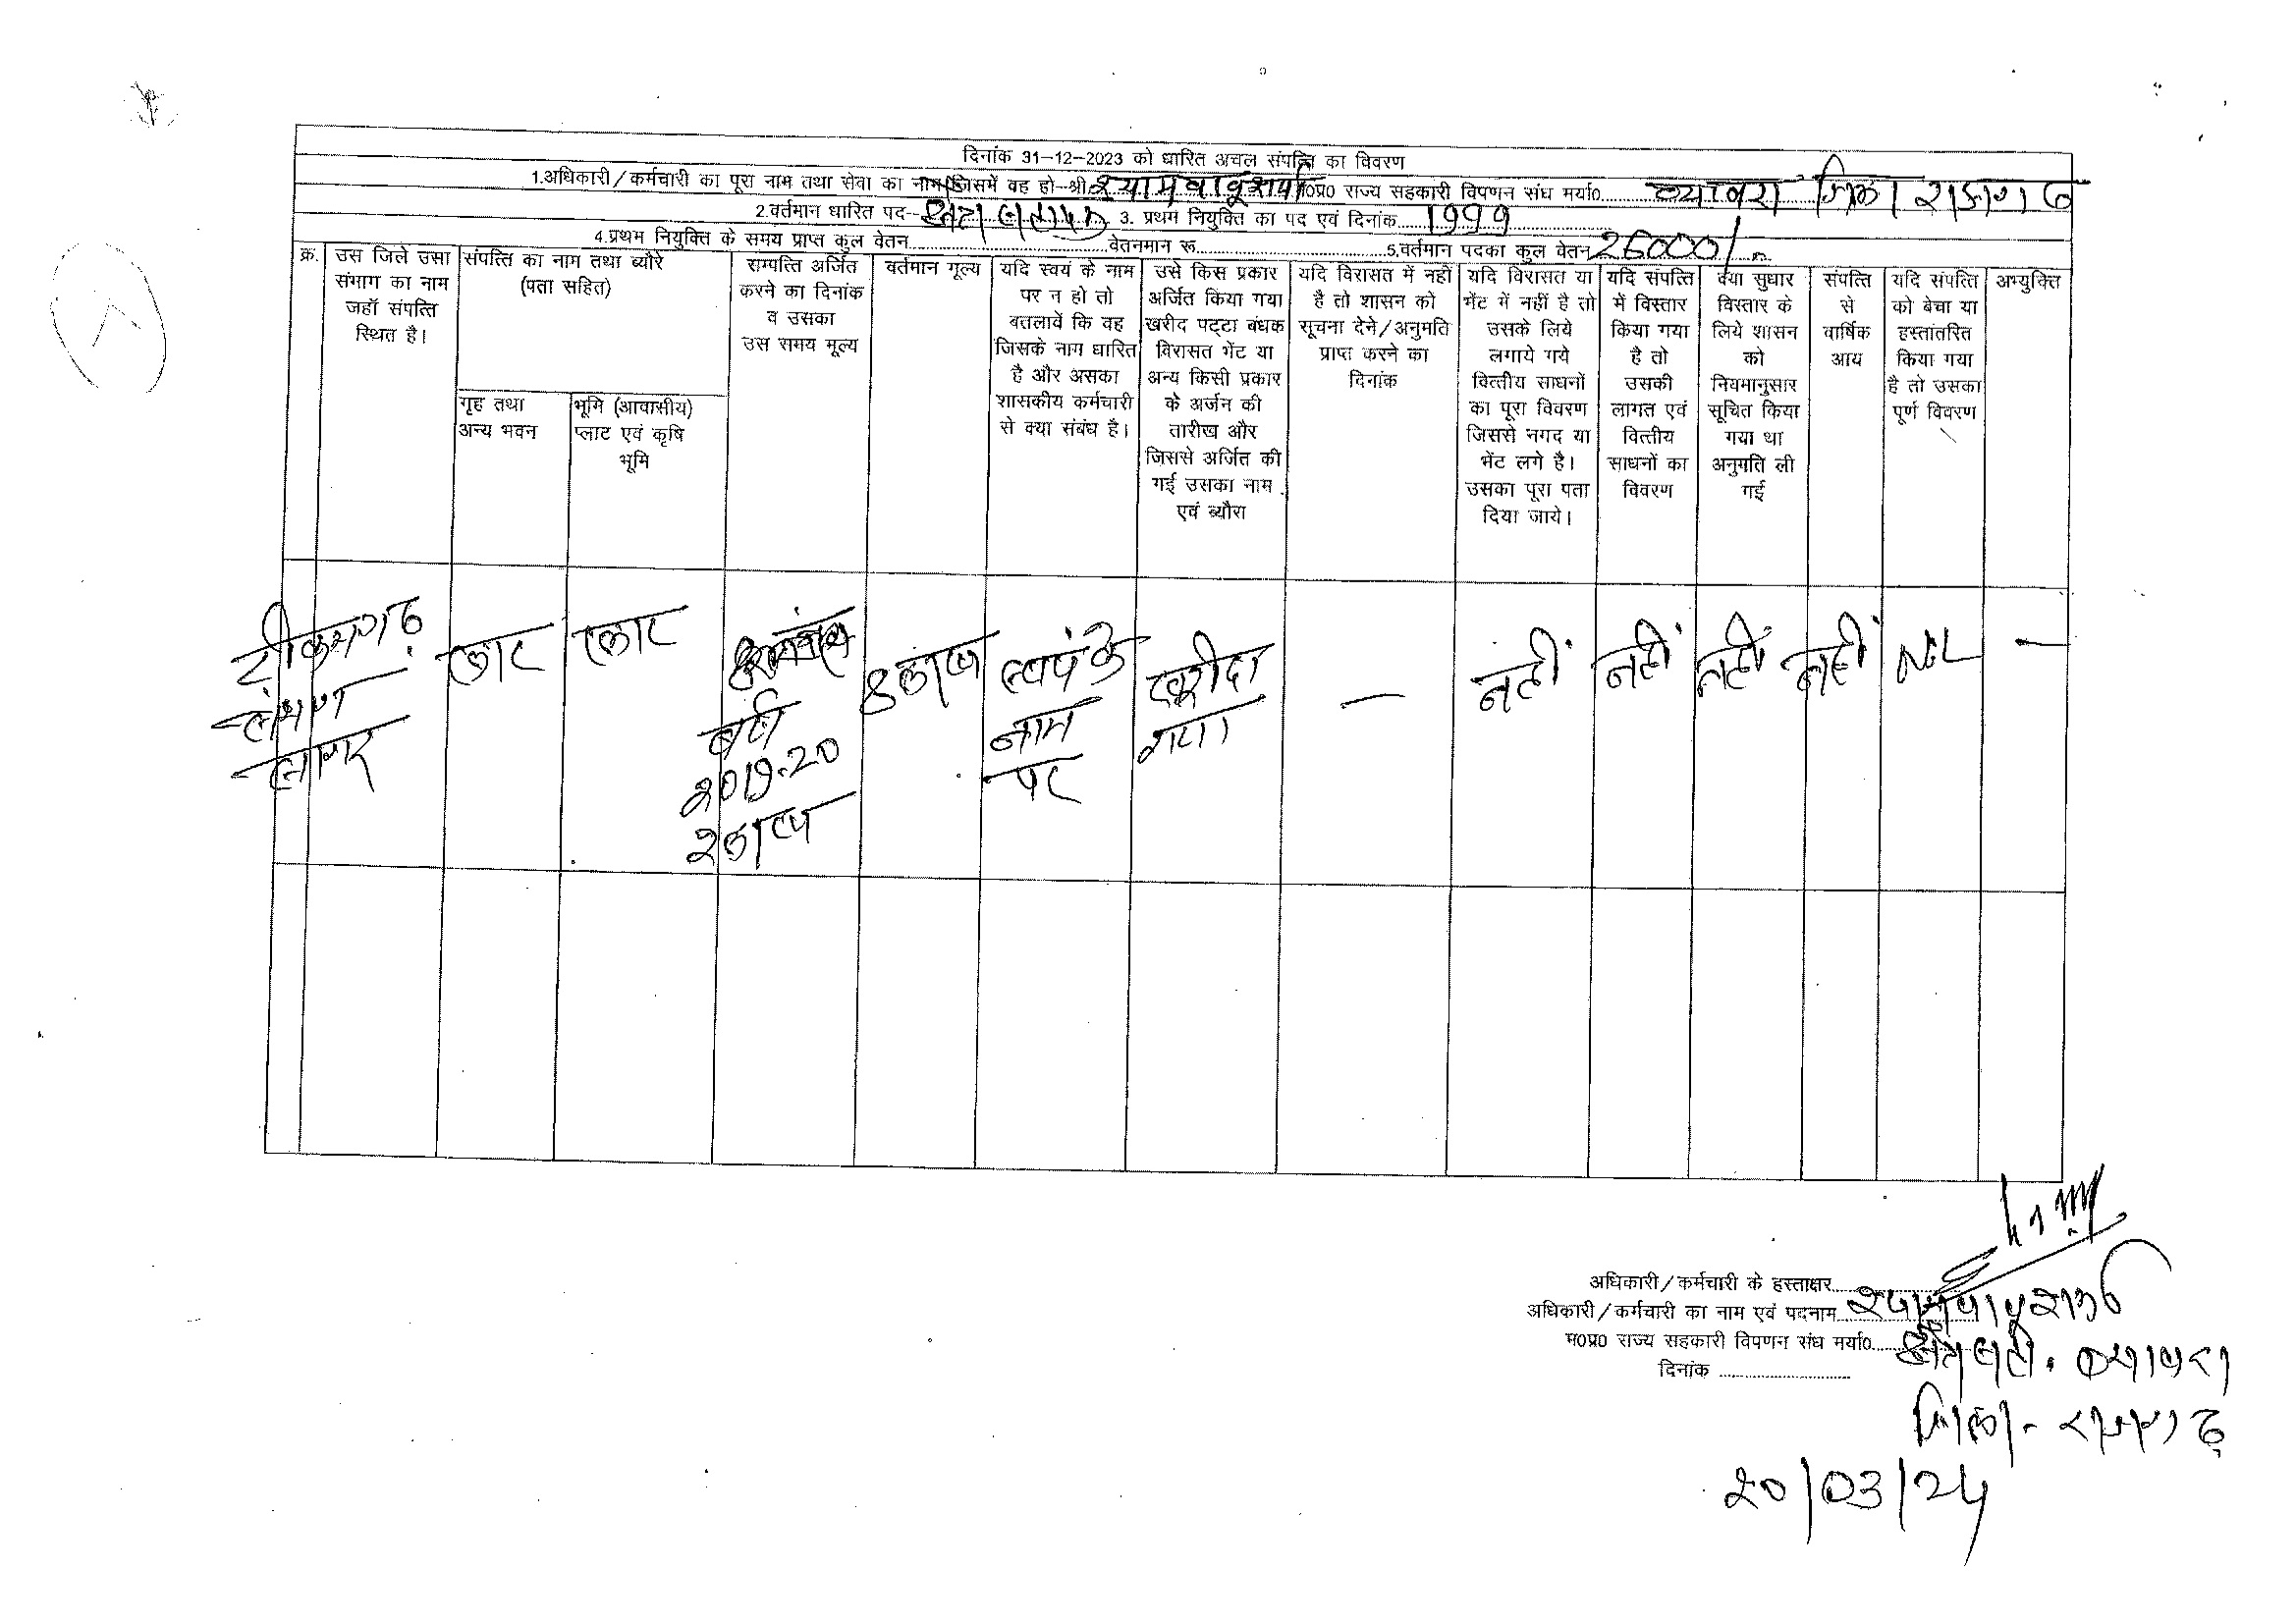 दिनांक 31-12-2023 को धारित अचल संपत्ति का विवरण
1.अधिकारी/कर्मचारी का पूरा नाम तथा सेवा का नाम जिसमें वह हो-श्री श्यामबाबू शर्मा म0प्र0 राज्य सहकारी विपणन संघ मर्या0 ब्यावरा जिला राजगढ
2.वर्तमान धारित पद- 3. प्रथम नियुक्ति का पद एवं दिनांक 1999
4.प्रथम नियुक्ति के समय प्राप्त कुल वेतन वेतनमान रू 5.वर्तमान पदका कुल वेतन 26000/-
क्र.
उस जिले उसा
संभाग का नाम
जहॉ संपत्ति
स्थित है।
संपत्ति का नाम तथा ब्यौरे
(पता सहित)
गृह तथा
अन्य भवन
भूमि (आवासीय)
प्लाट एवं कृषि
भूमि
सम्पत्ति अर्जित
करने का दिनांक
व उसका
उस समय मूल्य
वर्तमान मूल्य
यदि स्वयं के नाम
पर न हो तो
बतलावें कि वह
जिसके नाम धारित
है और असका
शासकीय कर्मचारी
से क्या संबंध है।
उसे किस प्रकार
अर्जित किया गया
खरीद पट्टा बंधक
विरासत भेंट या
अन्य किसी प्रकार
के अर्जन की
तारीख और
जिससे अर्जित की
गई उसका नाम
एवं ब्यौरा
यदि विरासत में नहीं
है तो शासन को
सूचना देने/अनुमति
प्राप्त करने का
दिनांक
यदि विरासत या
भेंट में नहीं है तो
उसके लिये
लगाये गये
वित्तीय साधनों
का पूरा विवरण
जिससे नगद या
भेंट लगे है।
उसका पूरा पता
दिया जाये।
यदि संपत्ति
में विस्तार
किया गया
है तो
उसकी
लागत एवं
वित्तीय
साधनों का
विवरण
क्या सुधार
विस्तार के
लिये शासन
को
नियमानुसार
सूचित किया
गया था
अनुमति ली
गई
संपत्ति
से
वार्षिक
आय
यदि संपत्ति
को बेचा या
हस्तांतरित
किया गया
है तो उसका
पूर्ण विवरण
अभ्युक्ति
टीकमगढ़
संभाग
सागर
प्लाट
प्लाट
वर्ष
2019-20
2 लाख
8 लाख
स्वयं के
नाम
पर
खरीदा
गया
—
नहीं
नहीं
नहीं
नहीं
NiL
—
अधिकारी/कर्मचारी के हस्ताक्षर
अधिकारी/कर्मचारी का नाम एवं पदनाम श्यामबाबू शर्मा
म0प्र0 राज्य सहकारी विपणन संघ मर्या0 ब्यावरा
दिनांक
जिला- राजगढ़
20/03/24